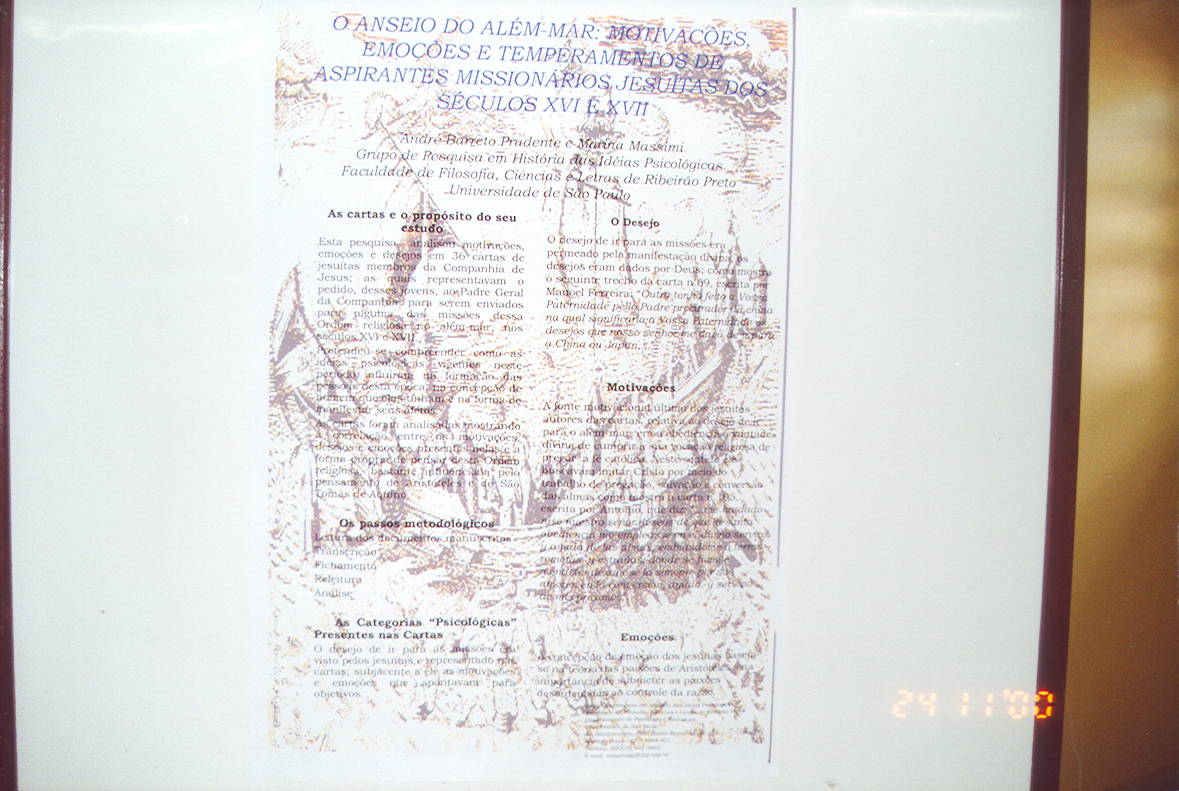 O ANSEIO DO ALÉM-MAR: MOTIVAÇÕES,
EMOÇÕES E TEMPERAMENTOS DE
ASPIRANTES MISSIONÁRIOS JESUÍTAS DOS
SÉCULOS XVI E XVII
André Barreto Prudente e Marina Massimi
Grupo de Pesquisa em História das Idéias Psicológicas
Faculdade de Filosofia, Ciências e Letras de Ribeirão Preto
Universidade de São Paulo
As cartas e o propósito do seu
estudo
Esta pesquisa analisou motivações,
emoções e desejos em 36 cartas de
jesuítas membros da Companhia de
Jesus; as quais representavam o
pedido, desses jovens, ao Padre Geral
da Companhia para serem enviados
para alguma das missões dessa
Ordem religiosa no além-mar, nos
séculos XVI e XVII.
Pretendeu-se compreender como as
idéias psicológicas vigentes neste
período influíram na formação das
pessoas desta época, na concepção de
homem que elas tinham e na forma de
manifestar seus afetos.
As cartas foram analisadas mostrando
a correlação entre as motivações,
desejos e emoções presentes nelas e a
forma própria de pensar desta Ordem
religiosa, bastante influenciada pelo
pensamento de Aristóteles e de São
Tomás de Aquino.
Os passos metodológicos
Leitura dos documentos manuscritos
Transcrição
Fichamento
Releitura
Análise
As Categorias “Psicológicas”
Presentes nas Cartas
O desejo de ir para as missões era
visto pelos jesuítas e representado nas
cartas; subjacente a ele as motivações
e emoções que apontavam para
objetivos.
O Desejo
O desejo de ir para as missões era
permeado pela manifestação divina, os
desejos eram dados por Deus; como mostra
o seguinte trecho da carta n.69, escrita por
Manoel Ferreira: “Outra tanho feito a Vossa
Paternidade pello Padre procurador da china
na qual significaria a Vossa Paternidade os
desejos que nosso senhor me dava de ir para
a China ou Japan.”
Motivações
A fonte motivacional última dos jesuítas
autores das cartas, relativa ao desejo de ir
para o além-mar, era a obediência à vontade
divina de cumprir a sua vocação religiosa de
pregar a fé católica. Neste sentido ele
buscavam imitar Cristo por meio do
trabalho de pregação, salvação e conversão
das almas, como mostra a carta n. 105,
escrita por Antonio, que diz: “...me ha dado
nuestro señor deseos de que la santa
obediencia me emplease en el divino servicio
y ajuda de las almas, embiandome a terras
remotas y
Emoções
A concepção de emoção dos jesuítas baseia-
se na teoria das paixões de Aristóteles, na
importância de submeter as paixões
desordenadas ao controle da razão.
24 11'00